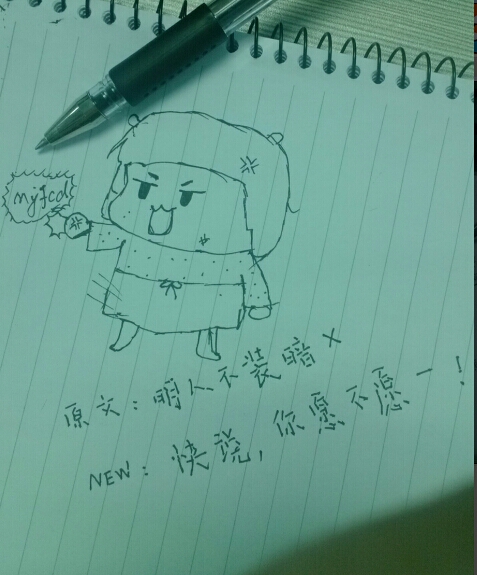 mjfcd
原文：明人不装暗X
NEW：快说，你愿不愿一！